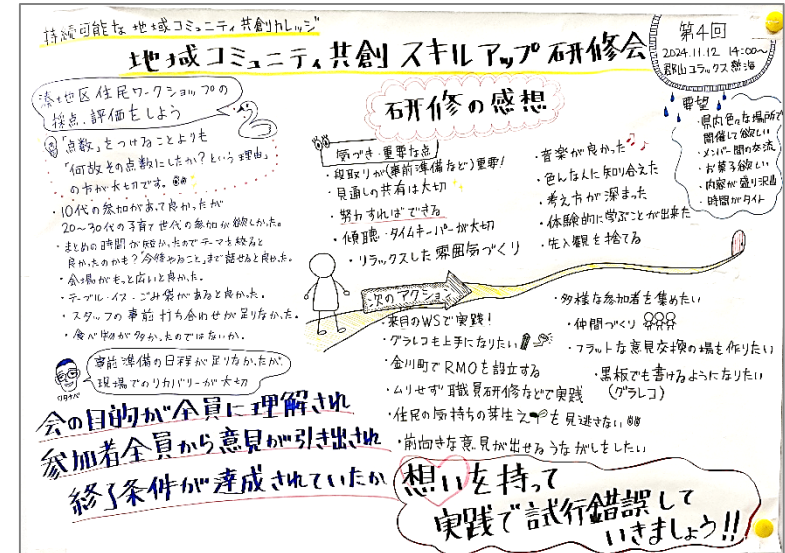 持続可能な地域コミュニティ共創カレッジ
地域コミュニティ共創 スキルアップ研修会
第4回
2024.11.12 14:00〜
郡山ユラックス熱海
湊地区住民ワークショップの
採点、評価をしよう
「点数」をつけることよりも
「何故その点数にしたか?という理由」
の方が大切です。
・10代の参加があって良かったが
20〜30代の子育て世代の参加が欲しかった。
・まとめの時間が短かったのでテーマを絞ると
良かったのかも?"今後やること"まで話せると良かった。
・会場がもっと広いと良かった。
・テーブル・イス・ごみ袋があると良かった。
・スタッフの事前打ち合わせが足りなかった。
・食べ物が多かったのではないか。
ワタナベ
事前準備の日程が足りなかったが、
現場でのリカバリーが大切
会の目的が全員に理解され
参加者全員から意見が引き出され
終了条件が達成されていたか
研修の感想
気づき・重要な点
・段取りが(事前準備など)重要!
・見通しの共有は大切
・努力すればできる
・傾聴・タイムキーパーが大切
・リラックスした雰囲気づくり
・音楽が良かった
・色んな人に知り合えた
・考え方が深まった
・体験的に学ぶことが出来た
・先入観を捨てる
要望
・県内色々な場所で
開催して欲しい
・メンバー間の交流
・お菓子欲しい
・内容が盛り沢山
・時間がタイト
次のアクション
・来月のWSで実践!
・グラレコを上手になりたい
・金川町でRMOを設立する
・ムリせず職員研修などで実践
・住民の気持ちの芽生えを見逃さない
・前向きな意見が出せるうながしをしたい
・多様な参加者を集めたい
・仲間づくり
・フラットな意見交換の場を作りたい
・黒板でも書けるようになりたい
(グラレコ)
想いを持って
実践で試行錯誤して
いきましょう!!